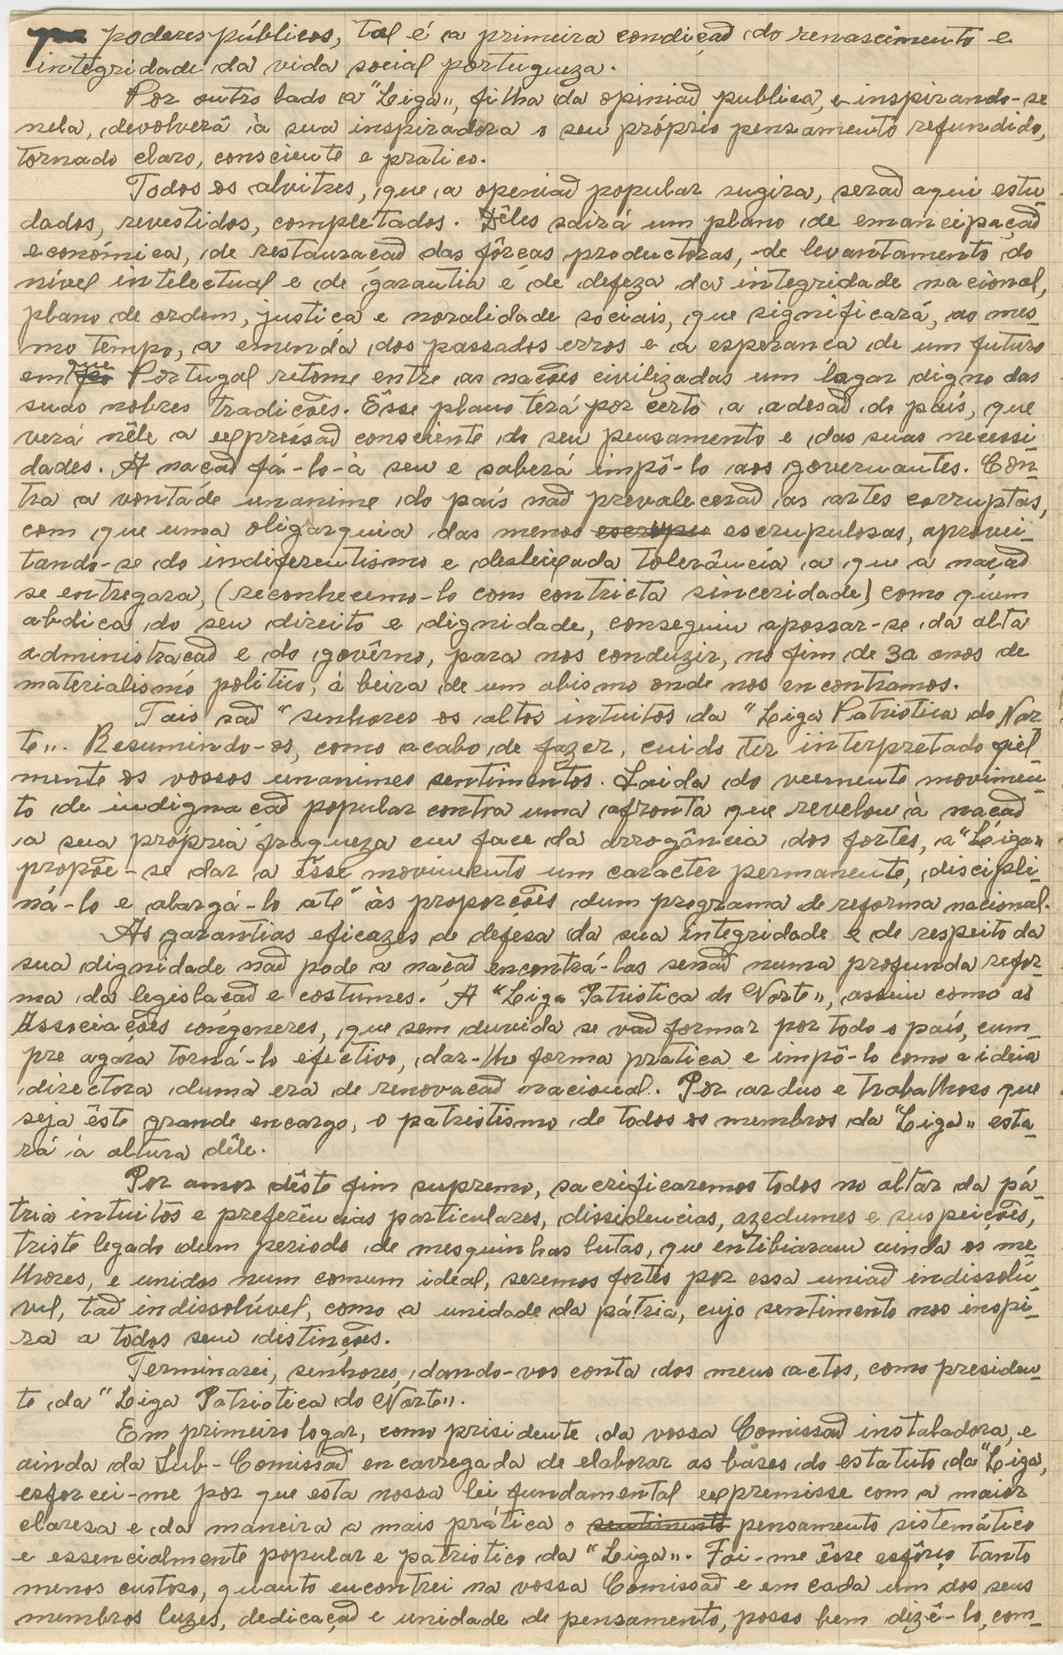 poderes públicos, tal é a primeira condição do renascimento e
integridade da vida social portugueza.
Por outro lado a "Liga", filha da opinião publica, e inspirando-se
nela, devolverá à sua inspiradora o seu próprio pensamento refundido,
tornado claro, consciente e prático.
Todos os alvitres, que a openião popular sugira, serão aqui estu-
dados, revestidos, completados. Dêles sairá um plano de emancipação
económica, de restauração das fôrças productoras, de levantamento do
nível intelectual e de garantia e de defeza da integridade nacional,
plano de ordem, justiça e moralidade sociais, que significará, ao mes-
mo tempo, a emenda dos passados erros e a esperança de um futuro
em que Portugal retome entre as nações civilizadas um lagar digno das
suas nobres tradições. Êsse plano terá por certo a adesão do país, que
verá nêle a expressão consciente do seu pensamento e das suas necessi
dades. A nação fá-lo-à seu e saberá impô-lo aos governantes. Côn-
tra a vontade unanime do país não prevalecerão as artes corruptas,
com que uma oligarquia das menos escrupulosas, aprovei-
tando-se do indiferentismo e desleixada tolerância a que a nação
se entregara, (reconhecemo-lo com contricta sinceridade) como quem
abdica do seu direito e dignidade, conseguiu apossar-se da alta
administração e do govêrno, para nos conduzir, no fim de 30 anos de
materialismo politico, à beira de um abismo onde nos encontramos.
Tais são "senhores os altos intuitos da "Liga Patriotica do Nor
te". Resumindo-os, como acabo de fazer, cuido ter interpretado fiel
mente os vossos unanimes sentimentos. Saida do veemente movimen-
to de indignação popular contra uma afronta que revelou à nação
a sua própria fraqueza em face da arrogância dos fortes, a "Liga"
propõe-se dar a êsse movimento um caracter permanente, discipli-
ná-lo e alargá-lo até às proporções dum programa de reforma nacional.
As garantias eficazes de defesa da sua integridade e de respeito da
sua dignidade não pode a nação encontrá-las senão numa profunda refor-
ma da legislação e costumes. A "Liga Patriotica do Norte", assim como as
Associações congeneres, que sem duvida se vão formar por todo o país, cum-
pre agora torná-lo efectivo, dar-lhe forma pratica e impô-lo como a ideia
directora duma era de renovação nacional. Por arduo e trabalhoso que
seja êste grande encargo, o patriotismo de todos os membros da "Liga" esta-
rá à altura dêle.
Por amor dêste fim supremo, sacrificaremos todos no altar da pá-
tria intuitos e preferências particulares, dissidencias, azedumes e suspeições,
triste legado dum periodo de mesquinhas lutas, que entibiaram ainda os me-
lhores, e unidos num comum idéal, seremos fortes por essa união indissolú
vel, tão indissolúvel, como a unidade da pátria, cujo sentimento nos inspi-
ra a todos sem distinções.
Terminarei, senhores, dando-vos conta dos meus actos, como presiden-
te da "Liga Patriotica do Norte".
Em primeiro logar, como prisidente da vossa Comissão instaladora, e
ainda da Sub-Comissão encarregada de elaborar as bases do estatuto da "Liga",
esforcei-me por que esta nossa lei fundamental expremisse com a maior
claresa e da maneira a mais prática o sentimento pensamento sistemático
e essencialmente popular e patriotico da "Liga". Foi-me êsse esfôrço tanto
menos custoso, quanto encontrei na vossa Comissão e em cada um dos seus
membros luzes, dedicação e unidade de pensamento, posso bem dizê-lo, com-